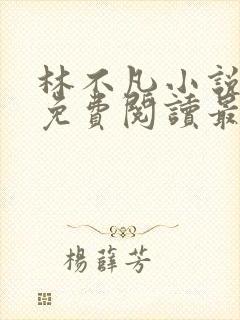 林不凡小說
免費閱讀最
楊薛芳